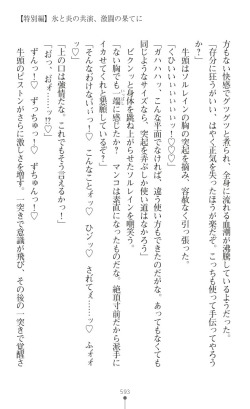 【特別編】氷と炎の共演、激闘の果てに
もない快感でグツグツと煮られ、全身に流れる血潮が沸騰している。
「存分に狂うがいい。はやく正気を失ったほうが楽だぞ。こっちも使って手伝ってやろう」
牛頭はソルレインの胸の突起を摘み、容赦なく引っ張った。
「くひぃいぃぃぃぃっ♡♡♡!?」
「ガハハハッ、こんな半面でなければ、違う使い方もできたのだがな。あってもなくても
同じようなサイズなら、突起を弄ぶしか使い道はなかろう」
ビクンッと身体を跳ね上がらせたソルレインを嘲笑う。
「ない胸でも一端に感じたか？　マンコは素直になったものだな。絶頂寸前だから派手に
イカせてくれと懇願しているぞ？」
「そんなおけなぃいっ♡！　こんなことォッ♡　ひンッ♡　されてェ……ッ♡　ふぉォ
ォ……ッ♡♡」
「上の口は強情だな。これでもそう言えるかっ！」
「おっ、おォ……ッ!?♡」
ずんっ！♡　ずっちゅっ！♡　ずちゅんっ！♡
牛頭のピストンがさらに激しさを増す。一突きで意識が飛び、その後の一突きで覚醒さ
593